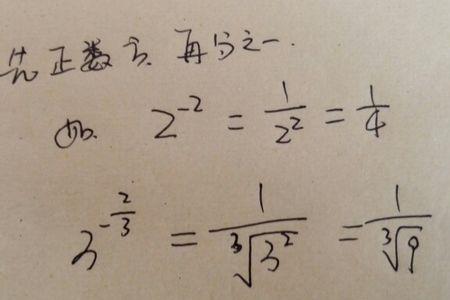 先正数次 再分之一.
如 2⁻² = 1/2² = 1/4
3^(-2/3) = 1/∛(3²) = 1/∛9